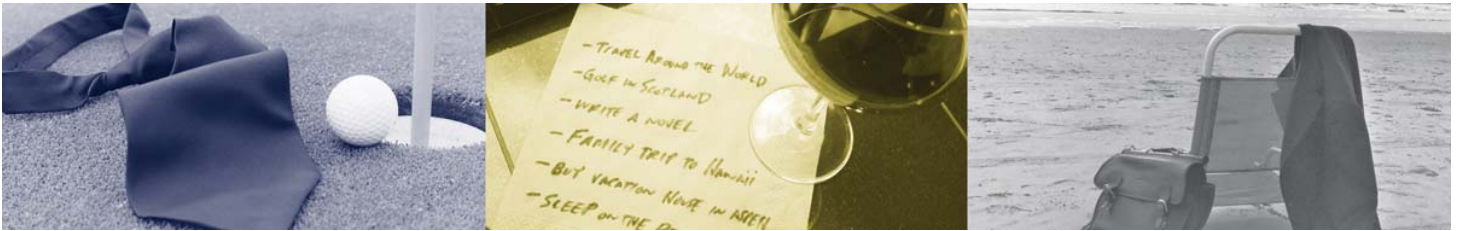 - TRAVEL AROUND THE WORLD
- GOLF IN SCOTLAND
- WRITE A NOVEL
- FAMILY TRIP TO HAWAII
- BUY VACATION HOUSE IN ASPEN
- SLEEP ON THE